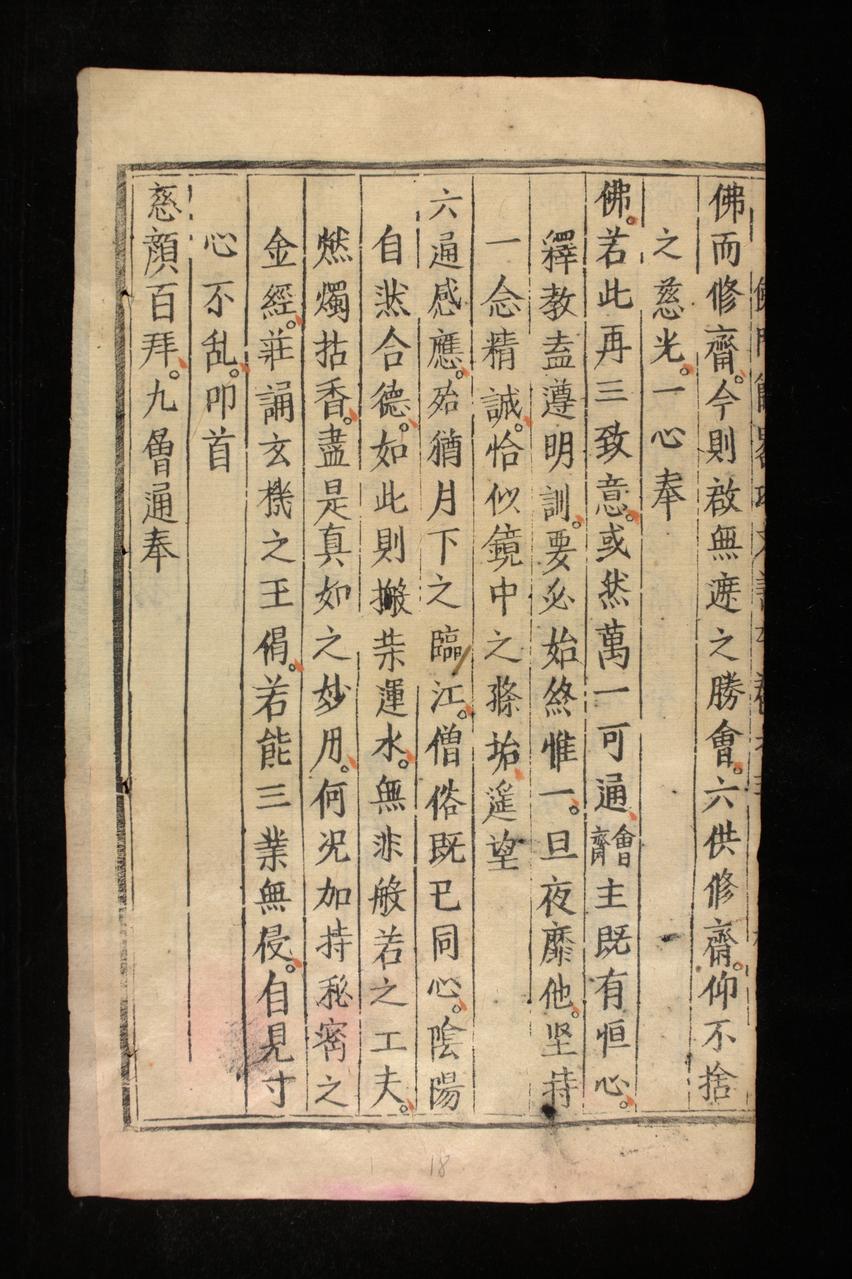 佛而修齋。今則啟無遮之勝會。六供修齋。仰不捨
之慈光。一心奉
佛。若此再三致意。或然萬一可通。齋會主既有恒心。
釋教盍遵明訓。要必始終惟一。旦夜靡他。坚持
一念精誠。恰似鏡中之滌垢。遥望
六通感應。殆猶月下之臨江。僧俗既已同心。陰陽
自然合德。如此則搬柴運水。無非般若之工夫。
燃燭拈香。盡是真如之妙用。何况加持秘密之
金經。莊誦玄機之王偈。若能三業無侵。自見寸
心不乱。叩首
慈顔百拜。九㑹通奉
18